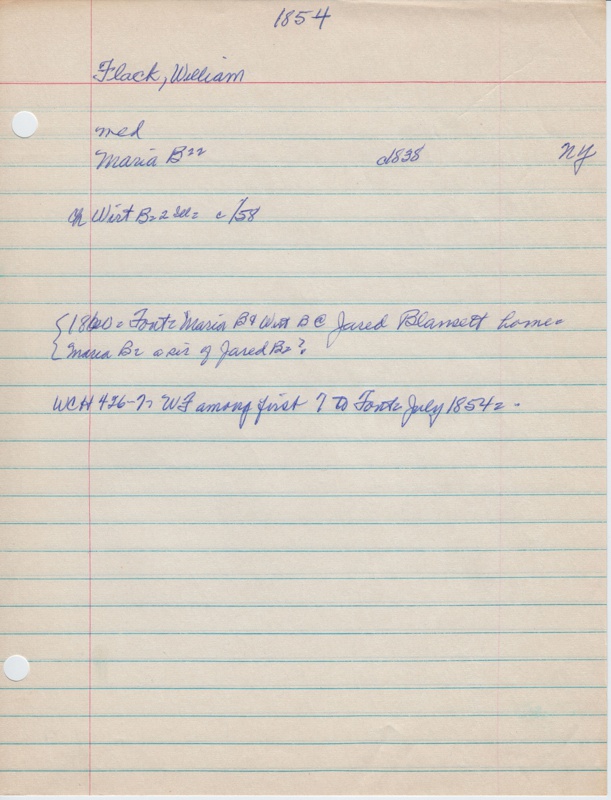 1854
Flack, William
med
Maria B??
c1838 NY
ch Wirt B=2 Ill= c/58
{1860= Font= Maria B & Wirt B @ Jared Blansett home=
{Maria B= a sis of Jared B=?
WCH 426-7= WF among first 7 to Font= July 1854=.